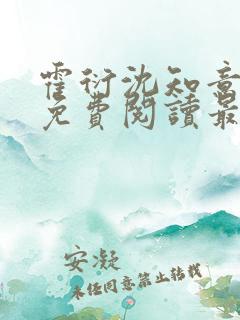 霍衍沈知意
免費閱讀最
安凝
未经同意禁止转载